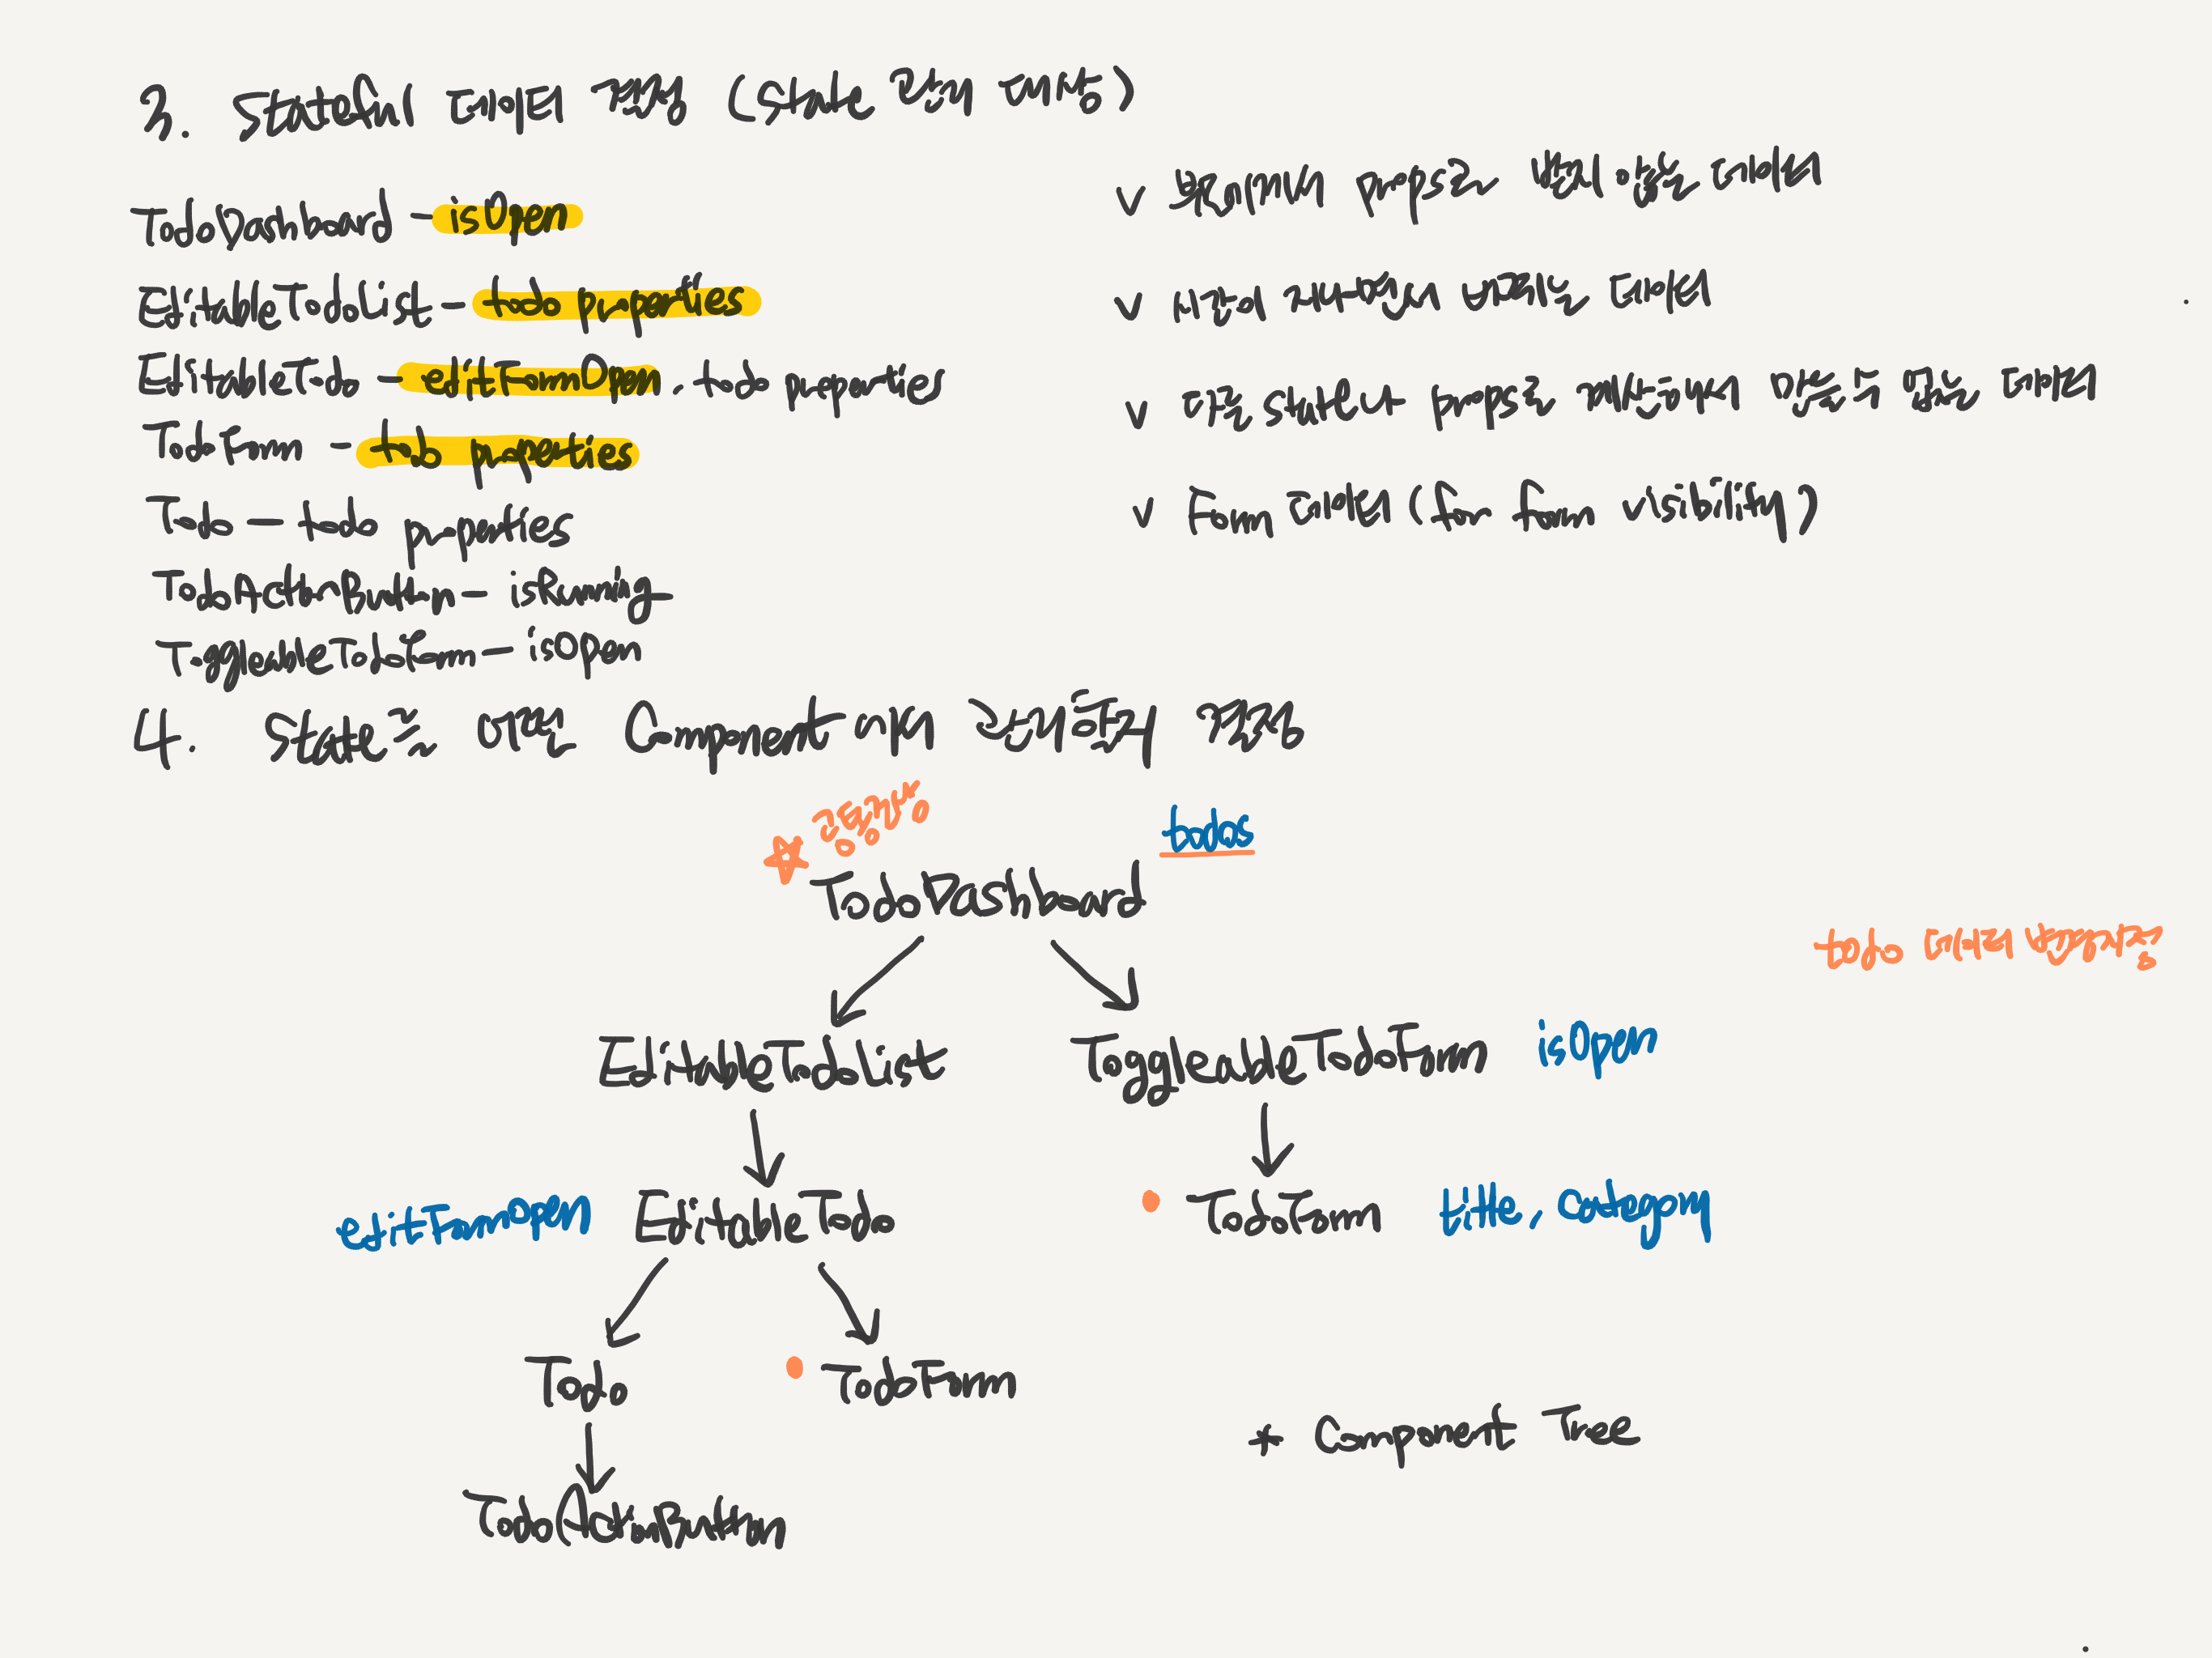 3. Stateful 데이터 결정 (State 관리 대상)
TodoDashboard - isOpen
EditableTodoList - todo properties
EditableTodo - editFormOpen, todo properties
TodoForm - todo properties
Todo - todo properties
TodoActionButton - isRunning
ToggleableTodoForm - isOpen
v 부모에게서 props로 받지 않은 데이터
v 시간이 지남에 따라 변하는 데이터
v 다른 state나 props로 계산하여 만들 수 없는 데이터
v Form 데이터 (for form visibility)
4. State를 어떤 Component에서 관리할지 결정
☆ 공통부모
todos
TodoDashboard
todo 데이터
EditableTodoList
ToggleableTodoForm isOpen
editFormOpen EditableTodo
TodoForm title, category
Todo
TodoForm
* Component Tree
TodoActionButton